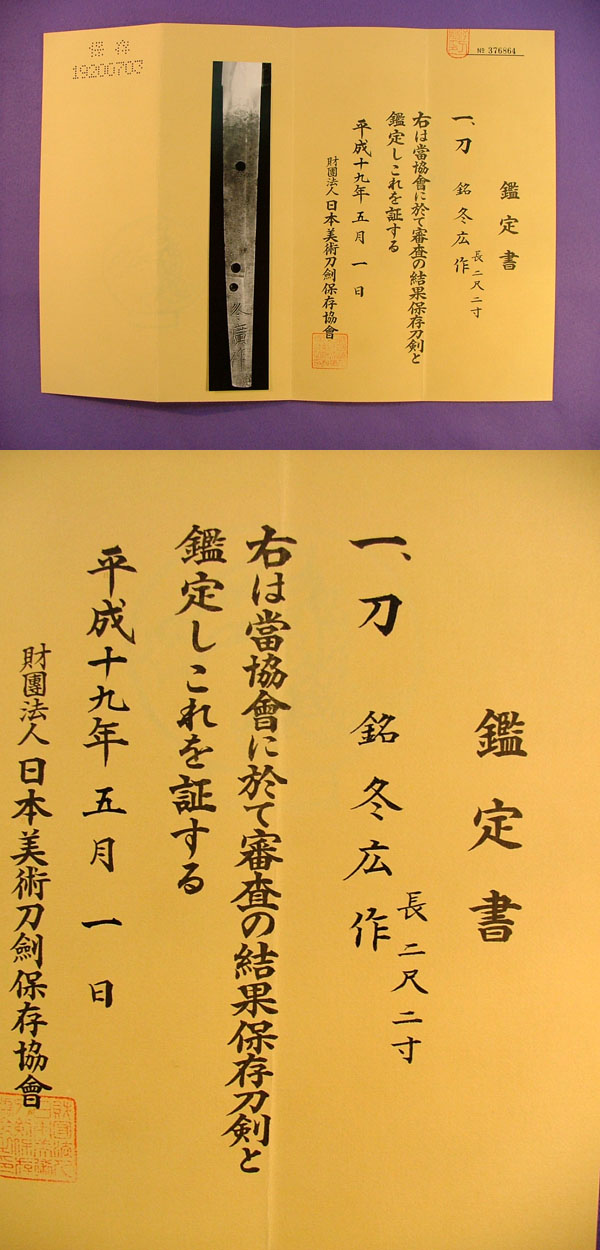 保存
19200703
№ 376864
鑑定書
一、刀 銘 冬広作
長 二尺二寸
右は當協會に於て審査の結果保存刀剣と
鑑定しこれを証する
平成十九年五月一日
財團法人日本美術刀劍保存協會
冬廣作
鑑定書
一、刀 銘 冬広作
長 二尺二寸
右は當協會に於て審査の結果保存刀剣と
鑑定しこれを証する
平成十九年五月一日
財團法人日本美術刀劍保存協會